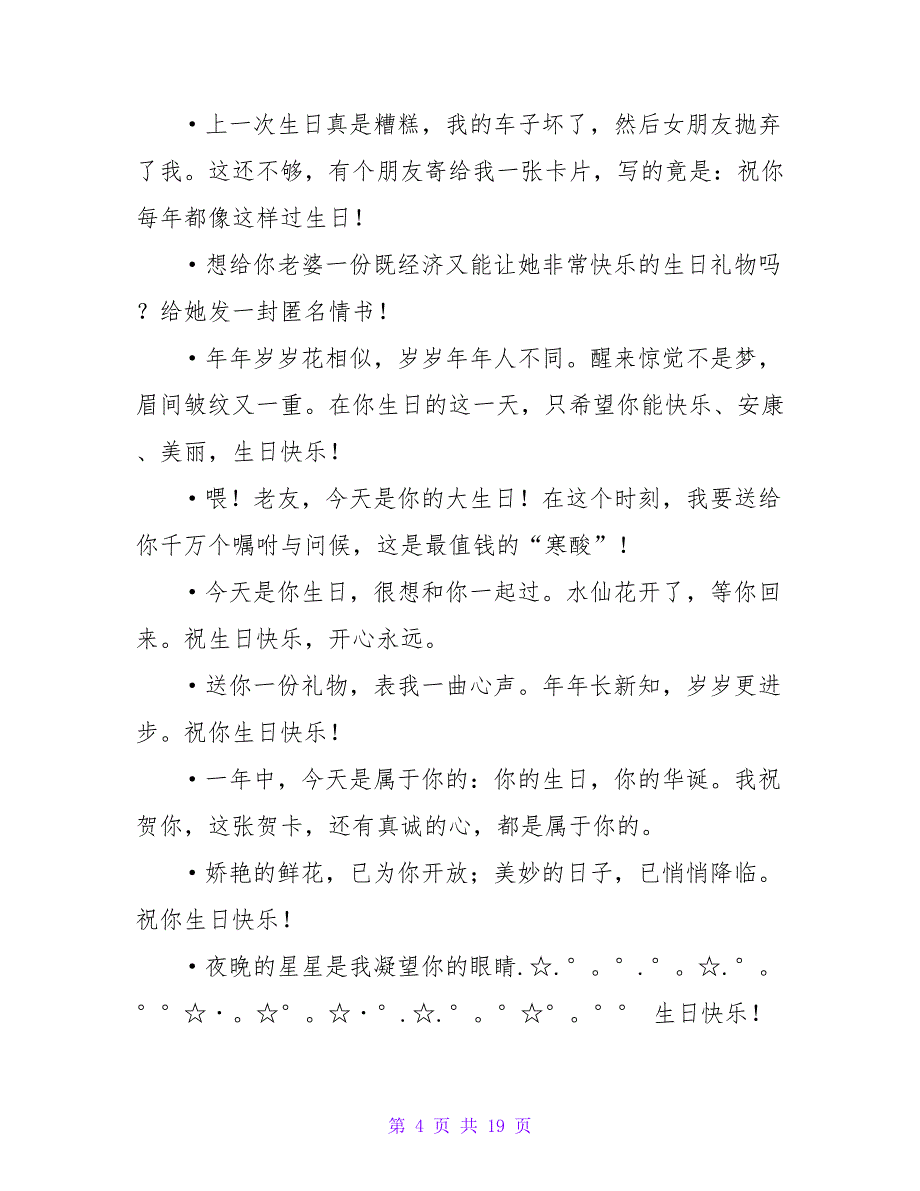 ·上一次生日真是糟糕，我的车子坏了，然后女朋友抛弃
了我。这还不够，有个朋友寄给我一张卡片，写的竟是：祝你
每年都像这样过生日！
·想给你老婆一份既经济又能让她非常快乐的生日礼物吗
？给她发一封匿名情书！
·年年岁岁花相似，岁岁年年人不同。醒来惊觉不是梦，
眉间皱纹又一重。在你生日的这一天，只希望你能快乐、安康
、美丽，生日快乐！
·喂！老友，今天是你的大生日！在这个时刻，我要送给
你千万个嘱咐与问候，这是最值钱的“寒酸”！
·今天是你生日，很想和你一起过。水仙花开了，等你回
来。祝生日快乐，开心永远。
·送你一份礼物，表我一曲心声。年年长新知，岁岁更进
步。祝你生日快乐！
·一年中，今天是属于你的：你的生日，你的华诞。我祝
贺你，这张贺卡，还有真诚的心，都是属于你的。
·娇艳的鲜花，已为你开放；美妙的日子，已悄悄降临。
祝你生日快乐！
·夜晚的星星是我凝望你的眼睛.☆.°。°.°。☆.°。
°°☆·。☆°。☆·°.☆.°。°☆°。°° 生日快乐！
第 4 页 共 19 页